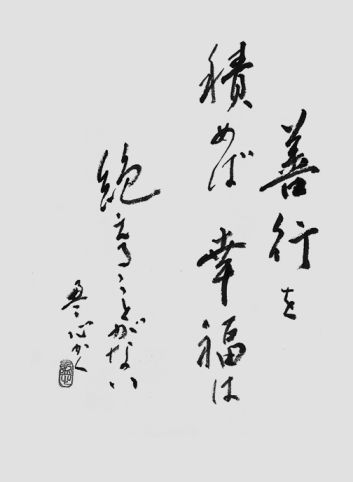 善行を
積めば 幸福は
絶えることがない